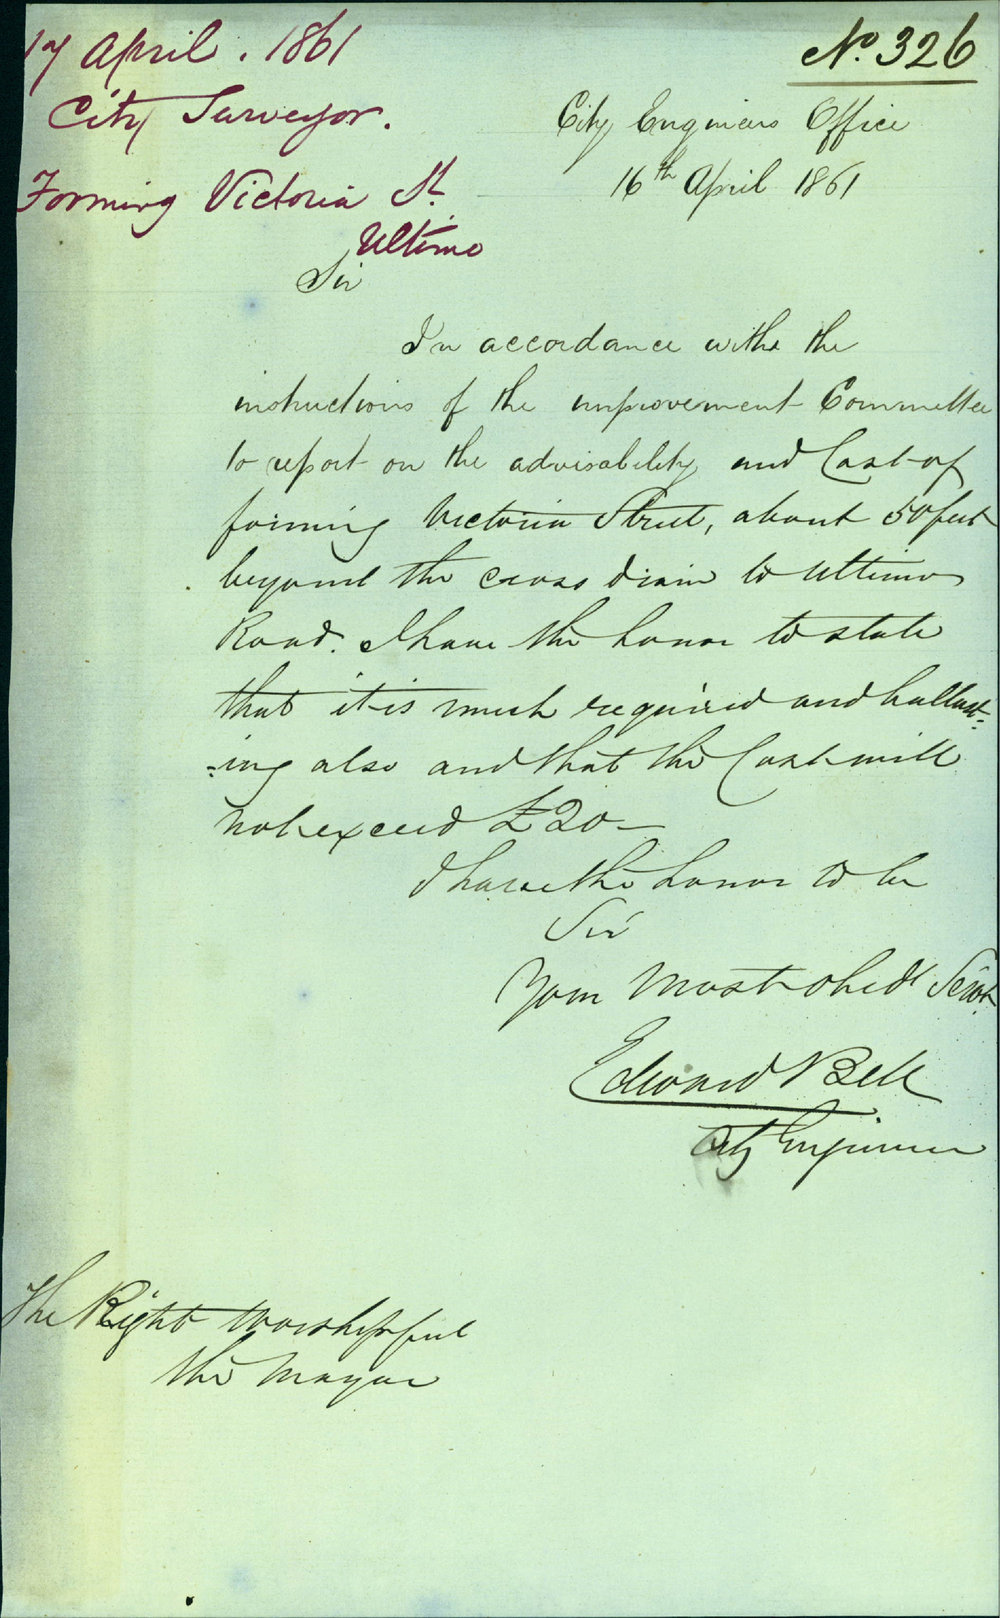 17 April. 1861
City Surveyor.
Forming Victoria St.
Ultimo
No. 326
City Engineers Office
16th April 1861
Sir
In accordance with the
instructions of the improvement Committee
to report on the advisability and Cost of
forming Victoria Street, about 50 feet
beyond the cross drain to Ultimo
Road. I have the honor to state
that it is much required and ballast-
-ing also and that the Cost will
not exceed £20-
I have the honor to be
Sir
Your Most obedt Servt.
Edward Bell
City Engineer
The Right Worshipful
the Mayor